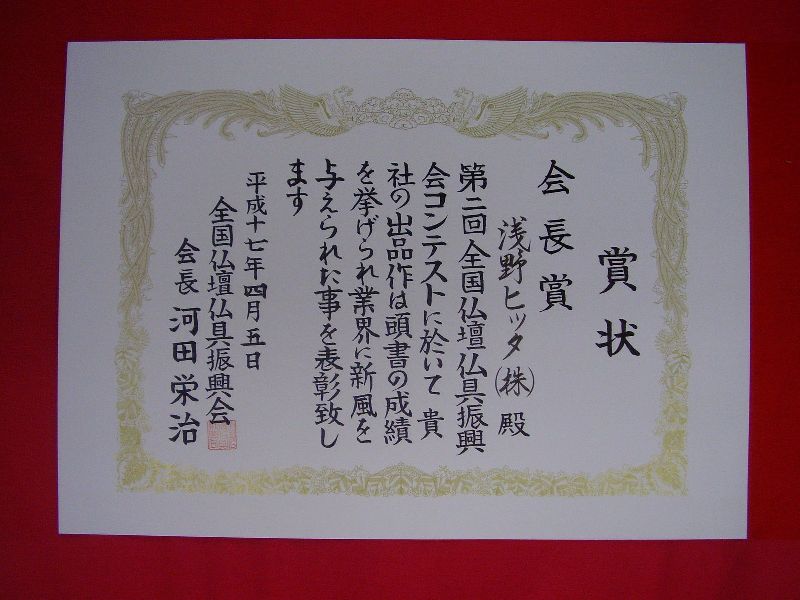 賞状
会長賞
浅野ヒッタ(株)殿
第二回全国仏壇仏具振興
会コンテストに於いて貴
社の出品作は頭書の成績
を挙げられ業界に新風を
与えられた事を表彰致し
ます
平成十七年四月五日
全国仏壇仏具振興会
会長 河田栄治